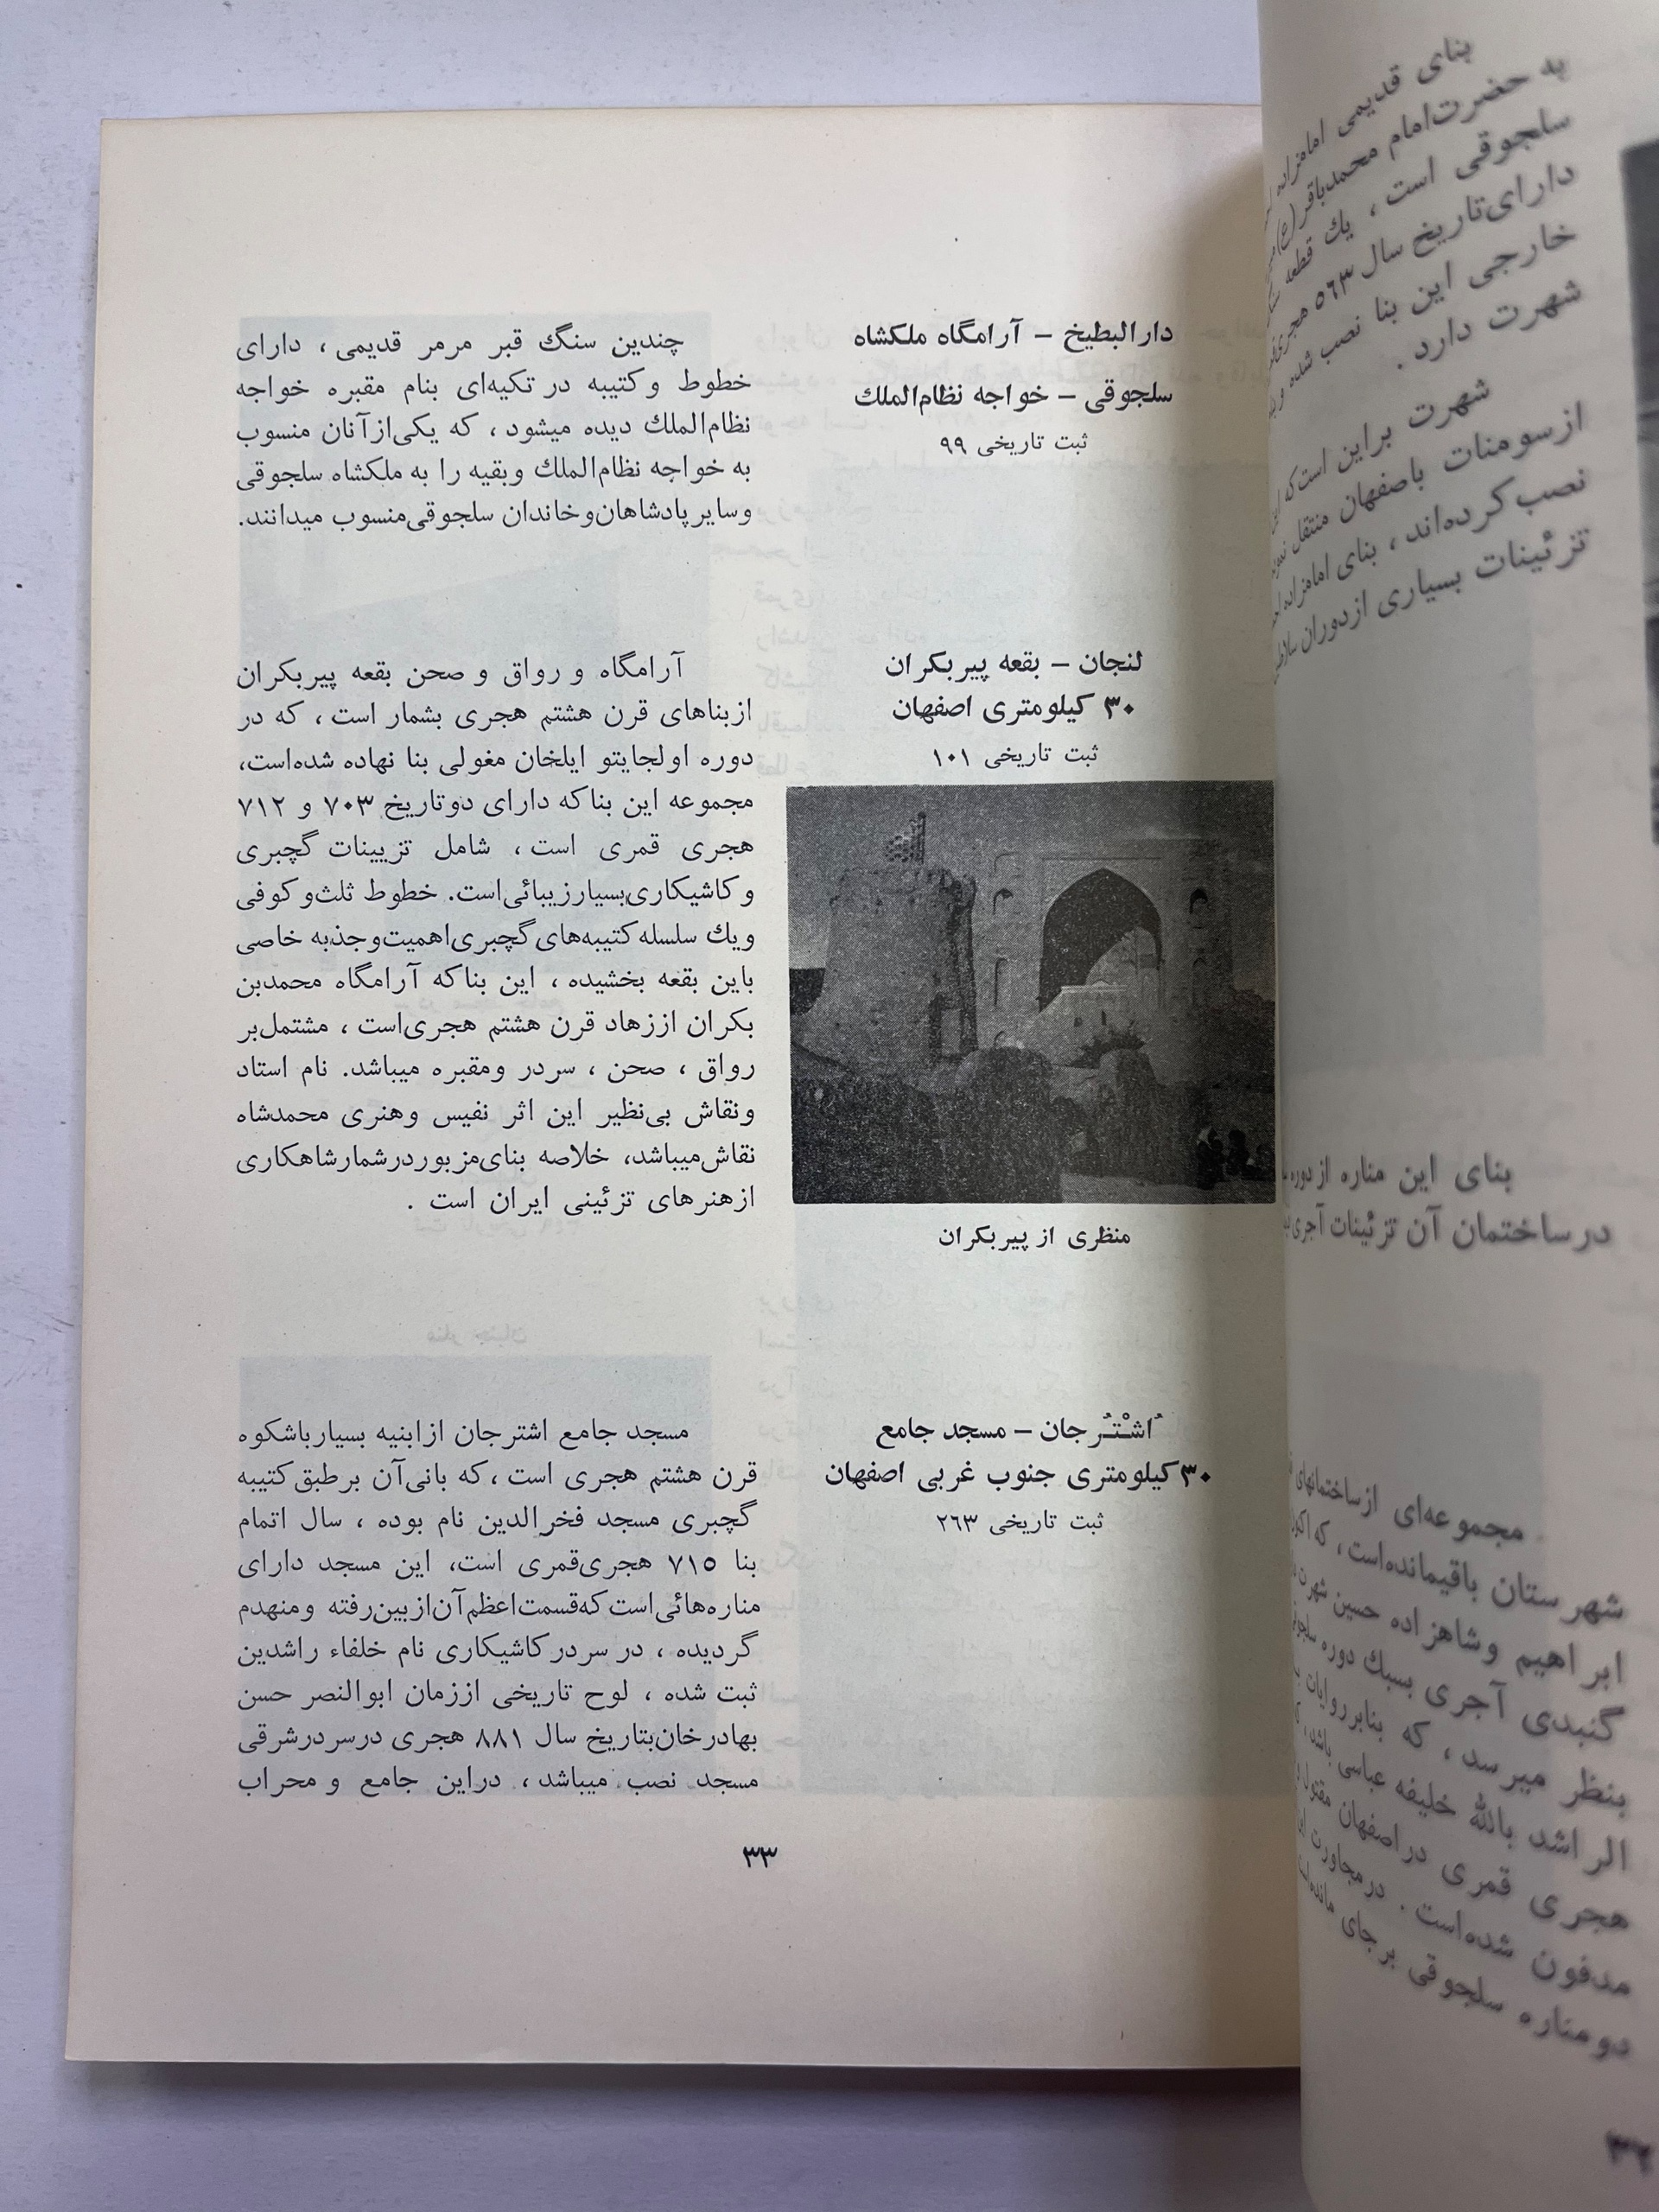 دارالبطیخ – آرامگاه ملکشاه
سلجوقی – خواجه نظام‌الملك
ثبت تاریخی ۹۹
چندین سنگ قبر مرمر قدیمی ، دارای
خطوط و کتیبه در تکیه‌ای بنام مقبره خواجه
نظام‌الملك دیده میشود ، که یکی‌از آنان منسوب
به خواجه نظام‌الملك وبقیه را به ملکشاه سلجوقی
وسایر پادشاهان‌وخاندان سلجوقی‌منسوب میدانند.
لنجان – بقعه پیربکران
۳۰ کیلومتری اصفهان
ثبت تاریخی ۱۰۱
منظری از پیربکران
آرامگاه و رواق و صحن بقعه پیربکران
ازبناهای قرن هشتم هجری بشمار است ، که در
دوره اولجایتو ایلخان مغولی بنا نهاده شده‌است،
مجموعه این بناکه دارای دوتاریخ ۷۰۳ و ۷۱۲
هجری قمری است ، شامل تزیینات گچبری
و کاشیکاری‌بسیارزیبائی‌است. خطوط ثلث‌و کوفی
ویك سلسله کتیبه‌های گچبری‌اهمیت‌وجذبه خاصی
باین بقعه بخشیده ، این بناکه آرامگاه محمدبن
بکران اززهاد قرن هشتم هجری‌است ، مشتمل‌بر
رواق ، صحن ، سردر ومقبره میباشد. نام استاد
ونقاش بی‌نظیر این اثر نفیس وهنری محمدشاه
نقاش‌میباشد، خلاصه بنای‌مزبوردرشمارشاهکاری
ازهنرهای تزئینی ایران است .
اُشْتُرجان – مسجد جامع
۳۰کیلومتری جنوب غربی اصفهان
ثبت تاریخی ۲۶۳
مسجد جامع اشترجان ازابنیه بسیارباشکوه
قرن هشتم هجری است ،که بانی‌آن برطبق‌کتیبه
گچبری مسجد فخرالدین نام بوده ، سال اتمام
بنا ۷۱۵ هجری‌قمری است، این مسجد دارای
مناره‌هائی‌است که‌قسمت‌اعظم‌آن‌ازبین‌رفته ومنهدم
گردیده ، در سردرکاشیکاری نام خلفاء راشدین
ثبت شده ، لوح تاریخی اززمان ابوالنصر حسن
بهادرخان‌بتاریخ سال ۸۸۱ هجری درسردرشرقی
مسجد نصب میباشد ، دراین جامع و محراب
۳۳
بنای قدیمی امامزاده
به حضرت‌امام محمدباقر(ع)
سلجوقی است ، یك قطعه
دارای‌تاریخ سال ۵۶۳ هجری
خارجی این بنا نصب شده و
شهرت دارد .
شهرت براین است‌که
ازسومنات باصفهان منتقل
نصب‌کرده‌اند ، بنای امامزاده
تزئینات بسیاری ازدوران
بنای این مناره از دوره
درساختمان آن تزئینات آجری
مجموعه‌ای ازساختمانهای
شهرستان باقیمانده‌است ، که
ابراهیم وشاهزاده حسین شهرت
گنبدی آجری بسبك دوره
بنظر میرسد ، که بنابرروایات
الراشد بالله خلیفه عباسی باشد ،
هجری قمری دراصفهان مقتول
مدفون شده‌است . درمجاورت
دومناره سلجوقی برجای